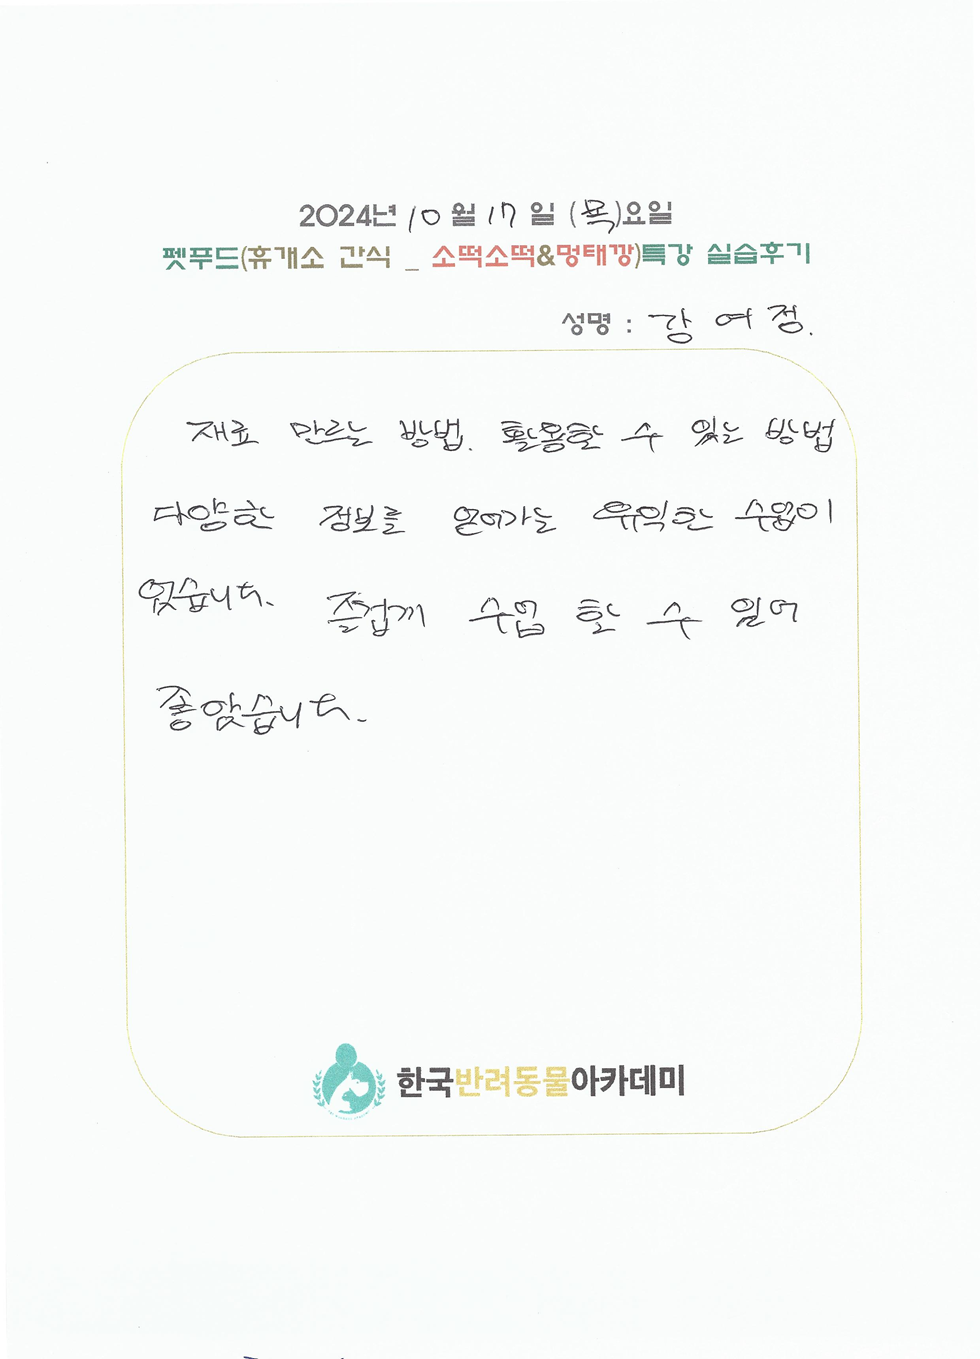 2024년 10월 17일 (목)요일
펫푸드(휴개소 간식 _ 소떡소떡&멍태깡)특강 실습후기
성명 : 강여정.
재료 만드는 방법. 활용할 수 있는 방법
다양한 정보를 얻어가는 유익한 수업이
었습니다. 즐겁게 수업 할 수 있어
좋았습니다.
한국반려동물아카데미